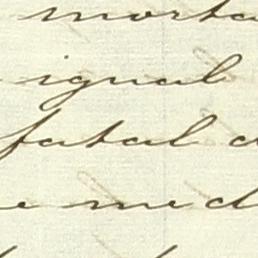 morta
ignal
fatal a
e med